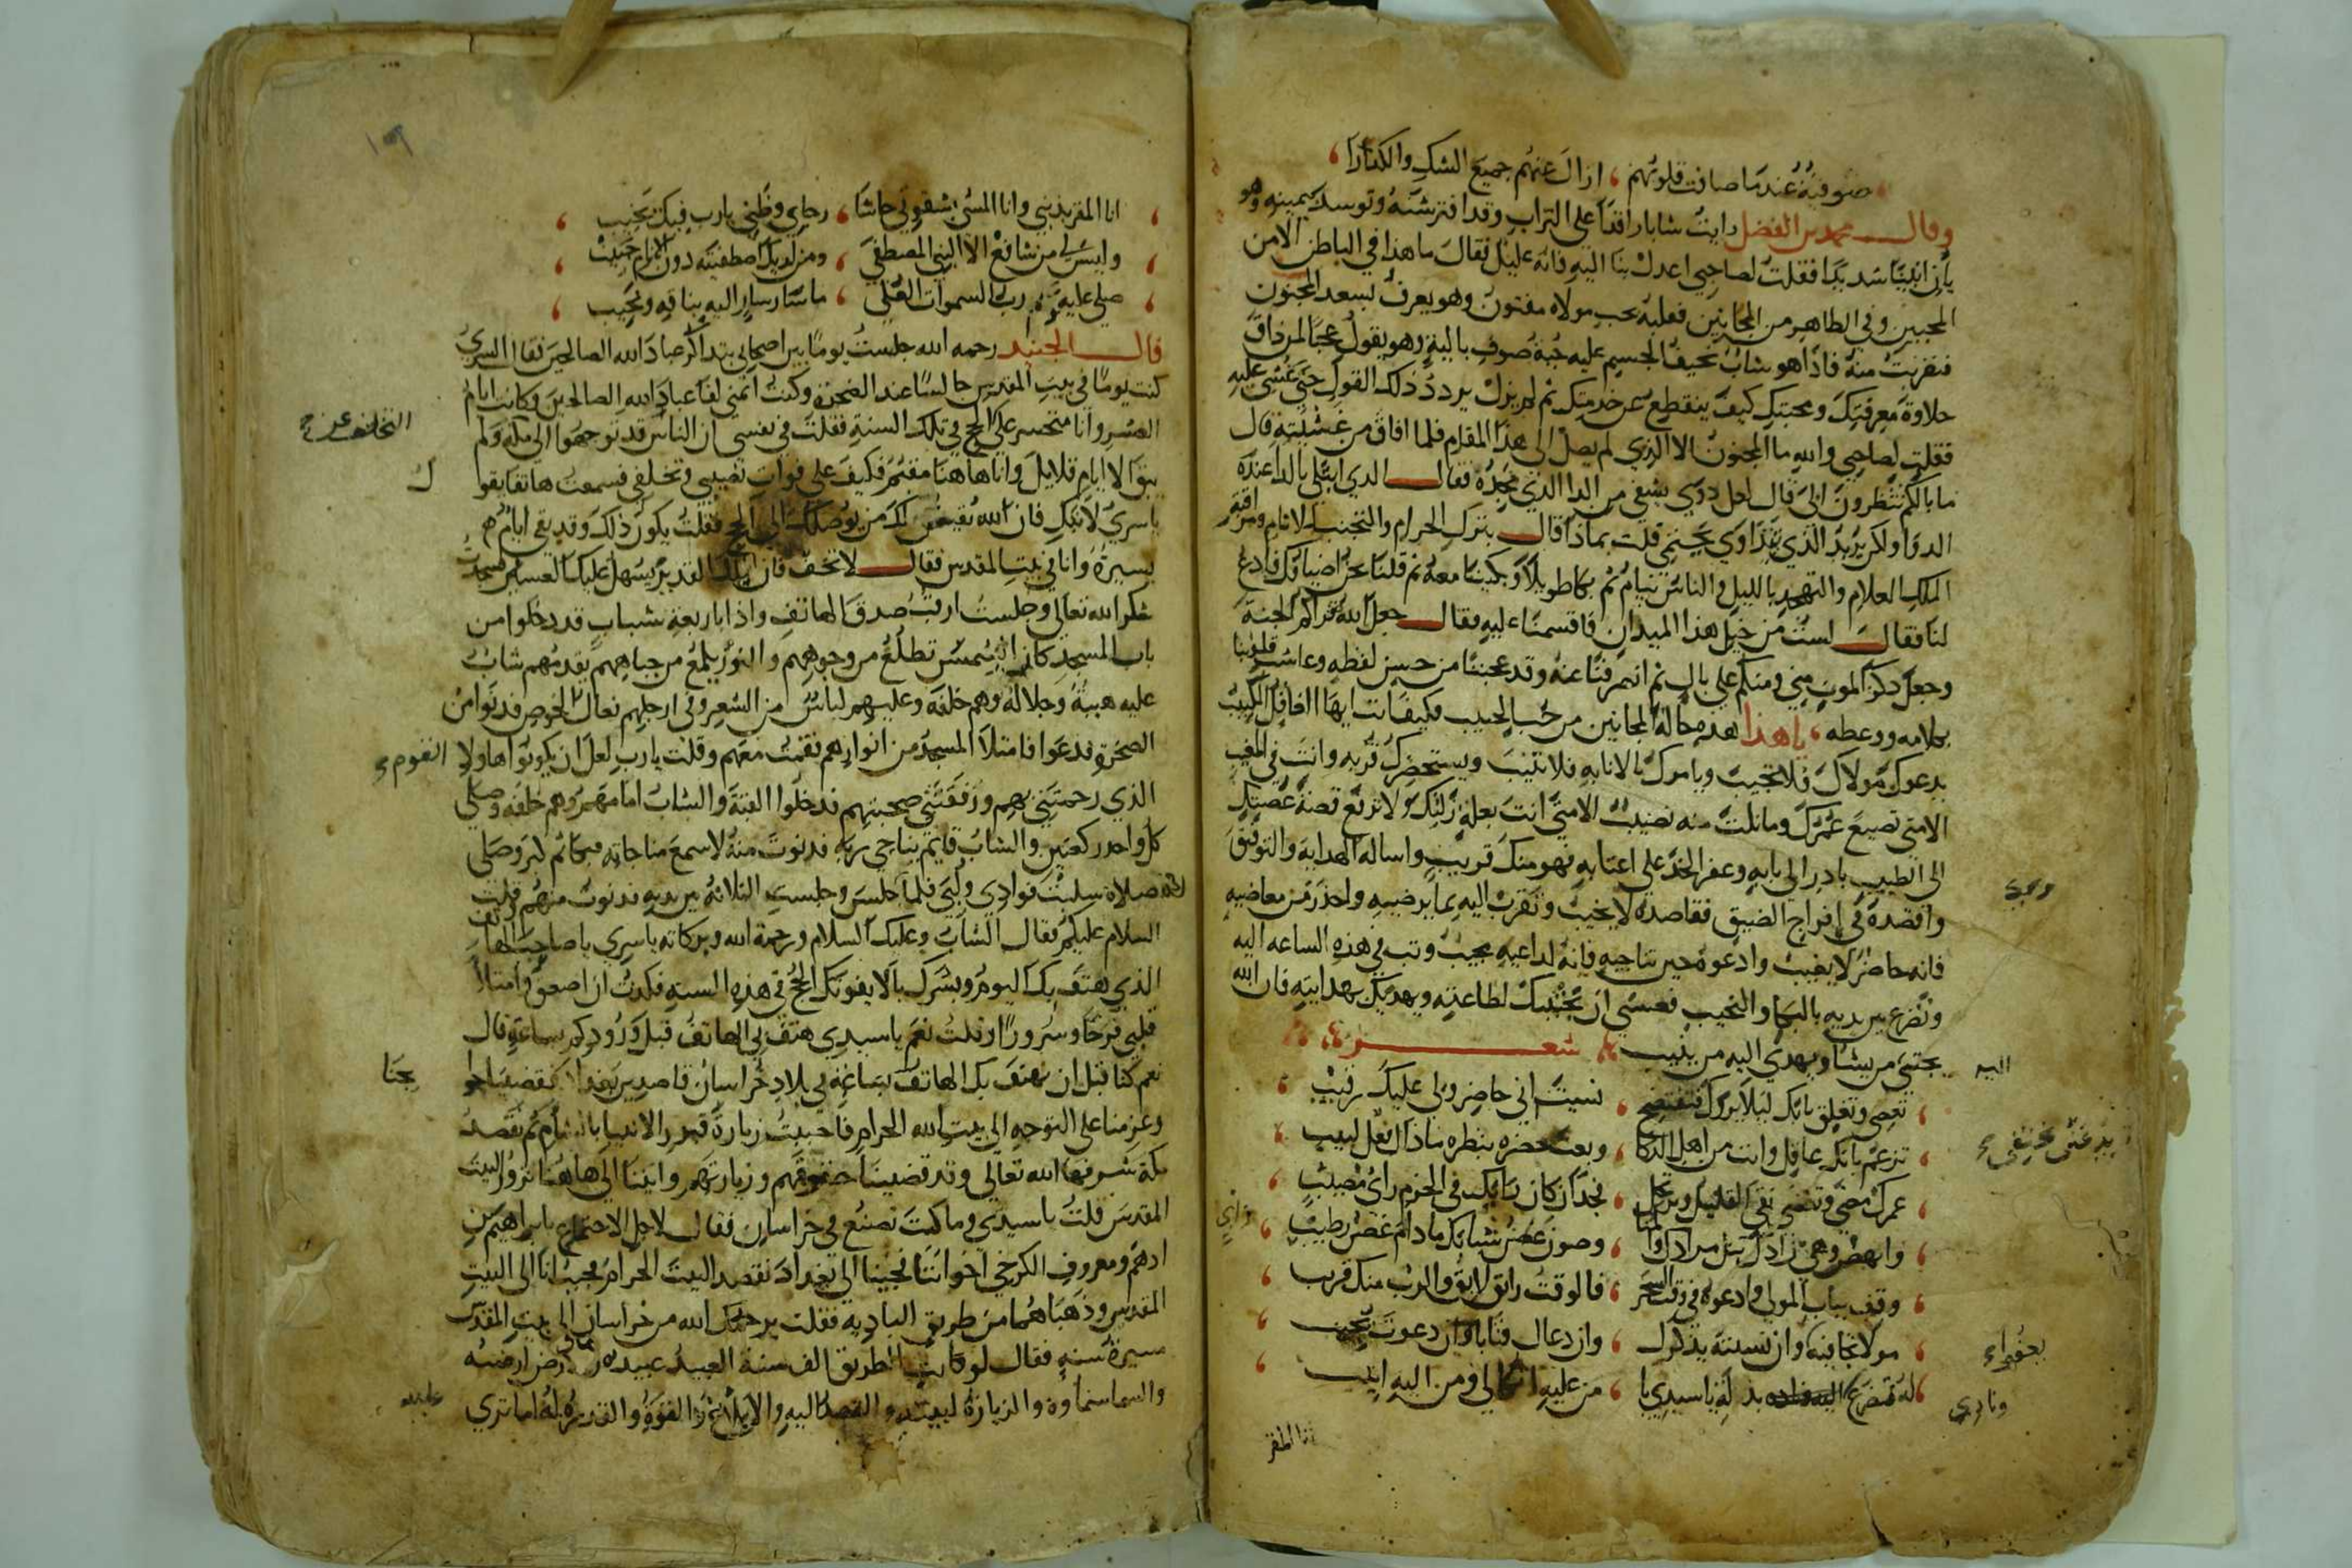 صوفية عندما صافت قلوبهم ، ازال عنهم جميع الشك والكدارا ،
وقال محمد بن الفضل رايت شابا راقدا على التراب وقد افترشه وتوسد يمينه وهو
يان انينا شديدا فقلت لصاحبي اعدل بنا اليه فانه عليل فقال ما هذا في الباطن الا من
المحبين وفي الظاهر من المجانين فعلبه بحب مولاه مفتون وهو يعرف بسعد المجنون
فتقربت منه فاذا هو شاب نحيف الجسم عليه جبة صوف بالية وهو يقول عجبا لمن ذاق
حلاوة معرفتك ومحبتك كيف ينقطع عن خدمتك ثم لم يزل يردد ذلك القول حتى غشي عليه
فقلت لصاحبي والله ما المجنون الا الذي لم يصل الى هذا المقام فلما افاق من غشيته قال
ما بالكم تنظرون الي قال لعل دوي يشفي من الدا الذي تجده فقال الذي ابتلى بالدا عنده
الدوا ولكن يريد الذي يتداوي يحتمي قلت بماذا قال بترك الحرام والتجنب لاثام ومراقبة
الملك العلام والتهجد بالليل والناس نيام ثم بكا طويلا وبكينا معه ثم قلنا نحن اضيافك فادع
لنا فقال لست من خيل هذا الميدان فاقسمنا عليه فقال جعل الله قراكم الجنة
وجعل ذكر الموت مني ومنكم على بال ثم انصرفنا عنه وقد عجبنا من حسن لفظه وعاشت قلوبنا
بكلامه ووعظه ، يا هذا هذه حالة المجانين من حب الحبيب فكيف انت ايها الغافل الكييب
يدعوك مولاك فلا تجيب ويامرك بالانابه فلا تنيب ويستحضرك قربه وانت في المغيب
الا متى تضيع عمرك وما نلت منه نصيب الا متى انت بعلة زلتك ولا ترفع قصة غصتك
الى الطبيب بادر الى بابه وعفر الخد على اعتابه فهو منك قريب واساله الهدايه والتوفيق
واقصده في افراج الضيق فقاصده لا يخيب وتقرب اليه بما يرضيه واحذر من معاصيه
فانه حاضر لا يغيب وادعوه حين تناجيه فانه لداعيه مجيب وتب في هذه الساعه اليه
وتضرع بين يديه بالبكا والنحيب فعسى ان يجتبيك لطاعته ويهديك بهدايته فان الله
يجتبي من يشا ويهدي اليه من ينيب شعر
اليه
، تعصي وتغلق بابك ليلا يروك فتفتضح ، نسيت اني حاضر ولي عليك رقيب ،
، تزعم بانك عاقل وانت من اهل الذكا ، وبعت حضره بنظره ماذا الفعل لبيب ،
، عمرك مضى وتقضى بقى القليل وترتحل ، فجد ان كان رايك في الحزم راي مصيب ،
، وانهض وهي زادك قبل مرادك ، وصون غصن شبابك ما دام غصن رطيب ،
، وقف بباب المولى وادعوه في وقت السحر ، فالوقت رايق لايق والرب منك قريب ،
، مولا تجافيه وان نسيته يذكرك ، وان دعاك فتاباه وان دعوت تجيب ،
، له تضرع بذلة يا سيدي يا ، من عليه اتكالي ومن اليه انيب ،
ونادي
انا المقر
، انا المقر بذنبي وانا المسي بشقوتي حاشا ، رجاي وظني يا رب فيك يخيب ،
، وليس لي من شافع الا النبي المصطفى ، ومن لديك اصطفيته دون الانام حبيب ،
، صلى عليه رب السموات العلى ، ما سار ساير اليه بناقه ونجيب ،
قال الجنيد رحمه الله جلست يوما بين اصحابي نتذاكر عباد الله الصالحين فقال السري
كنت يوما في بيت المقدس جالسا عند الصخرة وكنت اتمنى لقا عباد الله الصالحين وكانت ايام
العشر وانا متحسر على الحج في تلك السنة فقلت في نفسي ان الناس قد توجهوا الى مكه ولم
التخلف عن
يبق الا ايام قلايل وانا هاهنا مقيم فكيف على فوات نصيبي وتخلفي فسمعت هاتفا يقو
ل
يا سري لا تبك فان الله يقيض لك من يوصلك الى الحج فقلت يكون ذلك وقد بقي ايام
يسيرة وانا في بيت المقدس فقال لا تخف فان الملك القدير يسهل عليك العسير فسجدت
شكرا لله تعالى وجلست ارقب صدق الهاتف واذا باربعة شباب قد دخلوا من
باب المسجد كان الشمس تطلع من وجوههم والنور يلمع من جباههم يقدمهم شاب
عليه هيبة وجلالة وهم خلفه وعليهم لباس من الشعر وفي ارجلهم نعال الخوص فدنوا من
الصخرة فدعوا فامتلا المسجد من انوارهم فقمت معهم وقلت يا رب لعل ان يكونوا هاولا
القوم
الذي رحمتني بهم ورزقتني صحبتهم فدخلوا القبة والشاب امامهم وهم خلفه وصلى
كل واحد ركعتين والشاب قايم يناجي ربه فدنوت منه لاسمع مناجاته فبكا ثم كبر وصلى
صلاة سلبت فوادي ولبي فلما جلس وجلست الثلاثة بين يديه فدنوت منهم وقلت
السلام عليكم فقال الشاب وعليك السلام ورحمة الله وبركاته يا سري يا صاحب الهاتف
الذي هتف بك اليوم وبشرك بالا يفوتك الحج في هذه السنه فكدت ان اصعق وامتلا
قلبي فرحا وسرورا وقلت نعم يا سيدي هتف بي الهاتف قبل ورودكم بساعة قال
نعم كنا قبل ان يهتف بك الهاتف بساعة في بلاد خراسان قاصدين بغداد فقضينا حوا
يجنا
وعزمنا على التوجه الى بيت الله الحرام فاحببت زيارة قبور الانبيا بالشام ثم نقصد
مكة شرفها الله تعالى وقد قضينا حقوقهم وزيارتهم واتينا الى هاهنا نزور البيت
المقدس قلت يا سيدي وما كنت تصنع في خراسان فقال لاجل الاجتماع بابراهيم بن
ادهم ومعروف الكرخي اخواننا فجينا الى بغداد نقصد البيت الحرام فجيت انا الى البيت
المقدس وذهبا هما من طريق الباديه فقلت يرحمك الله من خراسان الى بيت المقدس
مسيرة سنه فقال لو كانت الطريق الف سنة العبيد عبيده والارض ارضه
والسما سماوه والزيارة لبيته والقصد اليه والابلاغ والقوة والقدرة له اما تري